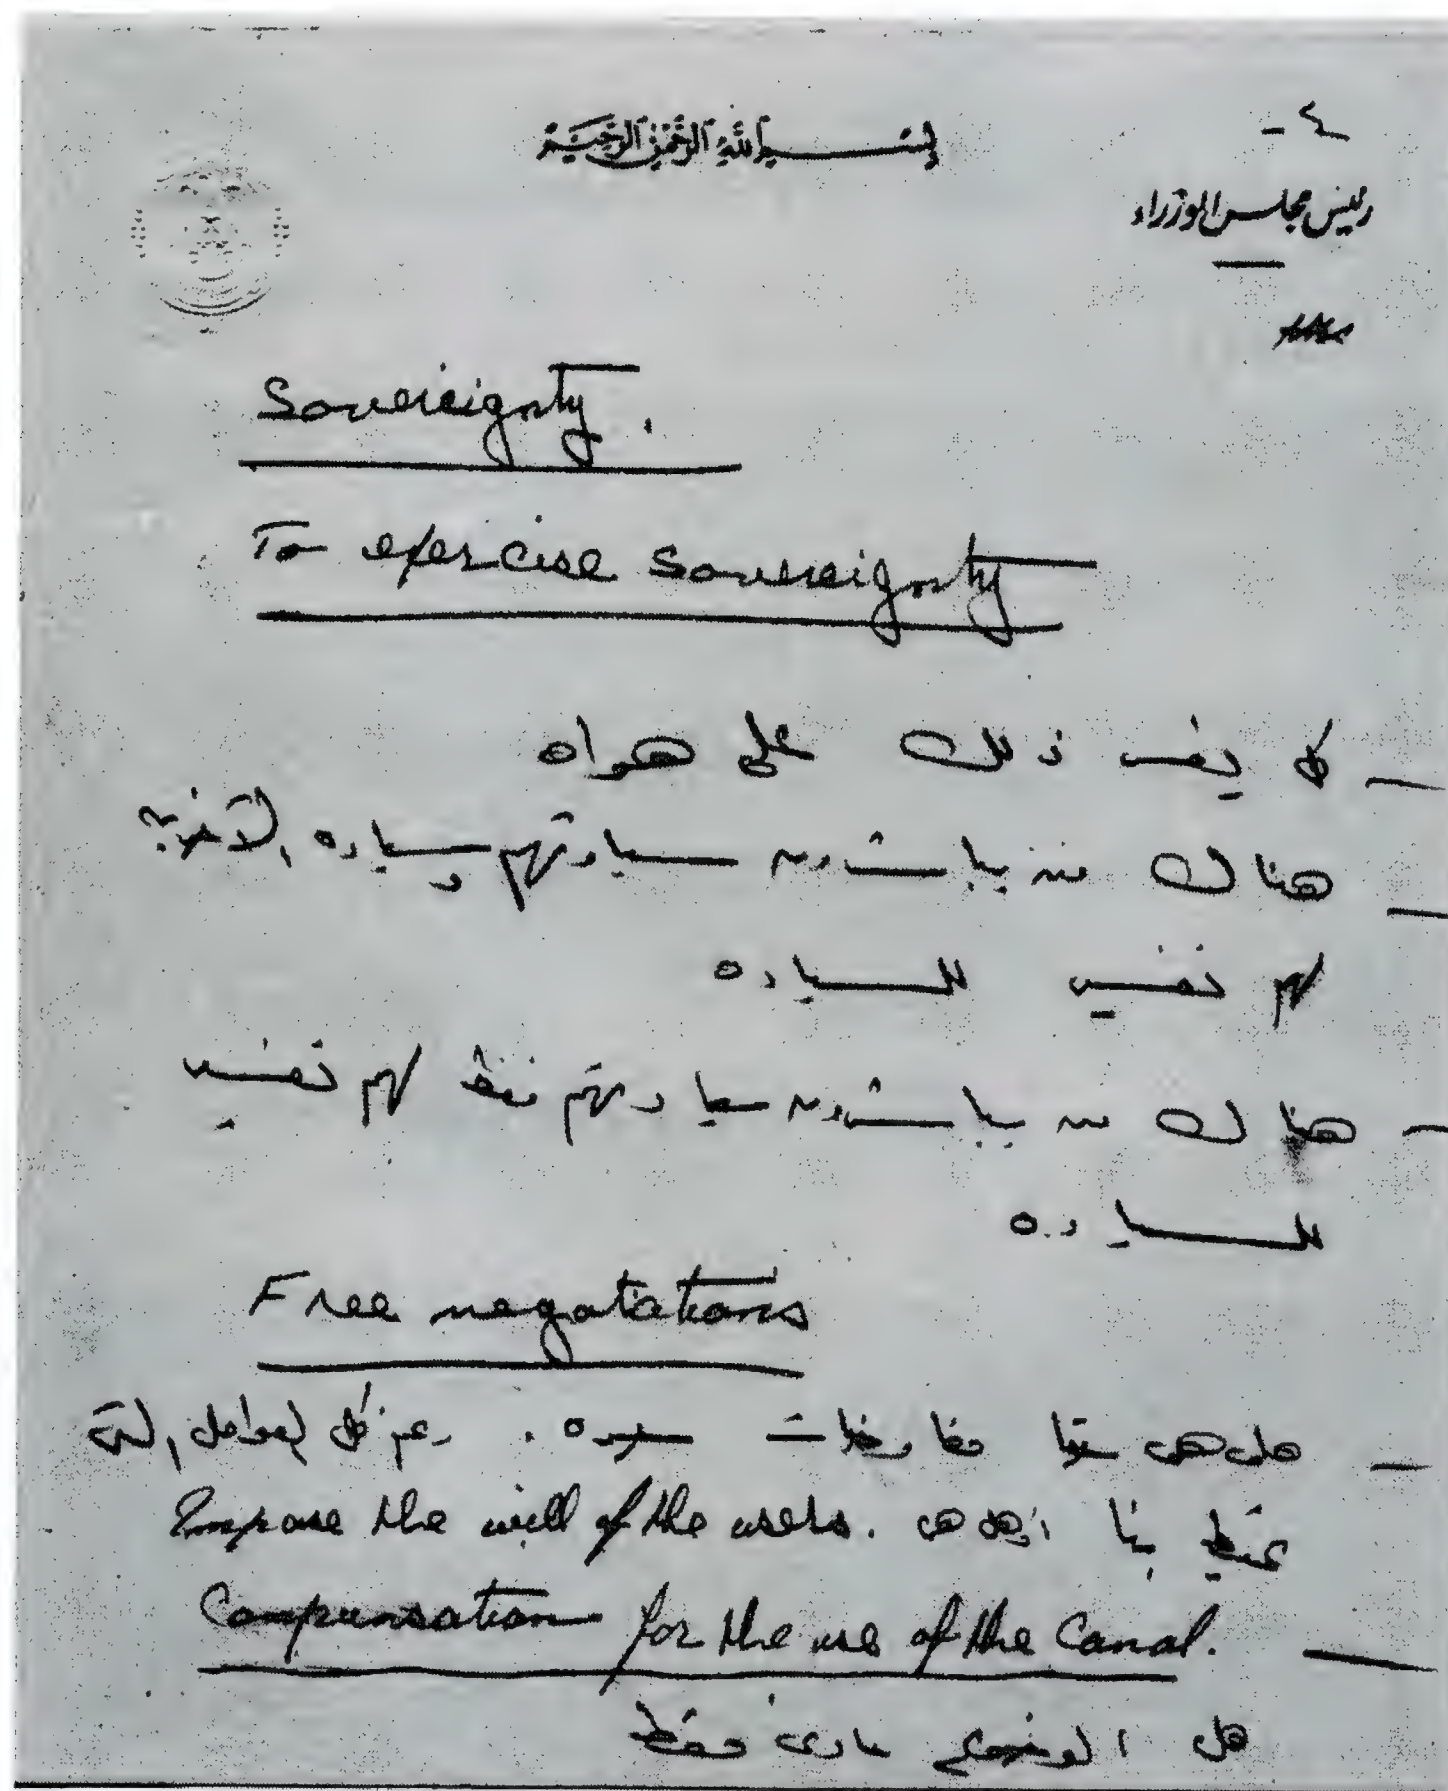 - ٤
بسم الله الرحمن الرحيم
رئيس مجلس الوزراء
Sovereignty.
To exercise sovereignty
— كل يفسر ذلك على هواه
— هناك من يباشرون سيادتهم وسياده الآخرين
لهم تفسير للسياده
— هناك من يباشرون سيادتهم فقط لهم تفسير
للسياده
Free negotiations
— هل هى حقا مفاوضات حره . رغم كل العوامل التى
تحيط بنا أم هى Impose the will of the users.
— Compensation for the use of the Canal.
هل الموضوع مادى فقط